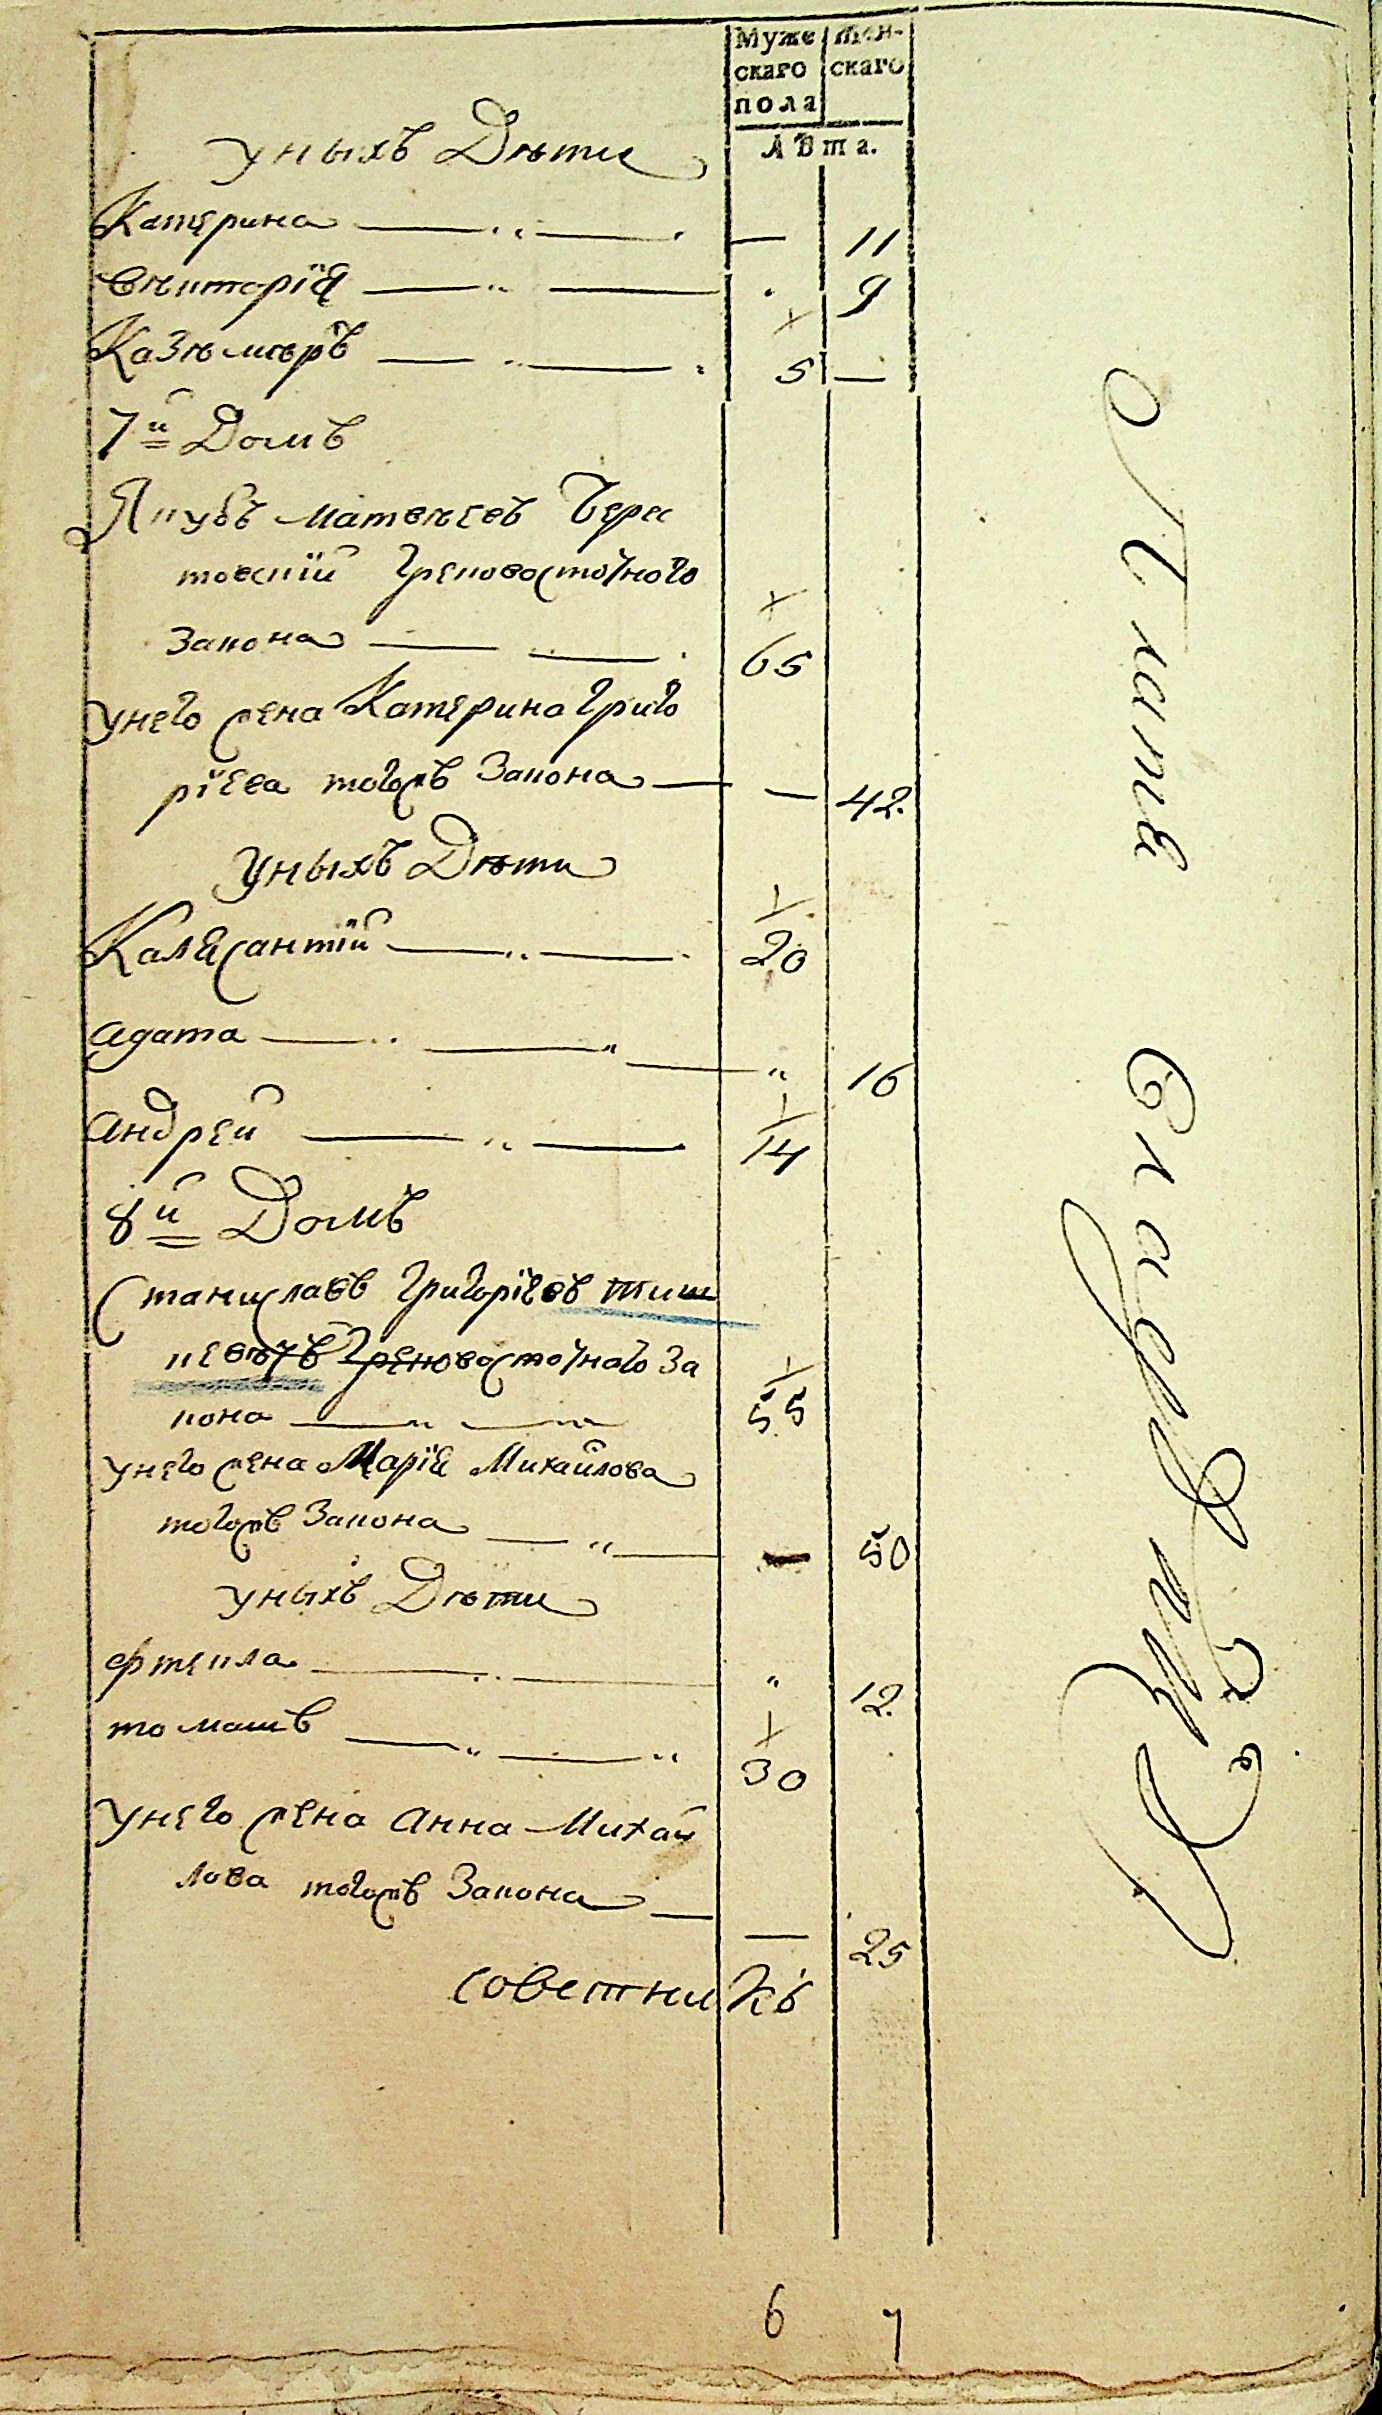 Муже скаго пола
Жен- скаго
лѣта.
уныхъ Дѣти
Катерина — 11
викторія 9
Казѣмѣръ 5 —
7й Домъ
Якубъ матвѣевъ Берес
товскій Грековосточного
Закона 65
унего жена Катерина Григо
рїева тогожъ Закона — 42.
уныхъ Дѣти
Калясантїй 20
агата 16
андрей 14
8й Домъ
Станиславъ Григорїевъ тиш
кевѣчъ Грековосточного За
кона 55
унего жена Марїя Михайлова
тогожъ Закона — 50
уныхъ Дѣти
фтекла 12.
томашъ 30
унего жена анна Михай
лова тогожъ Закона — 25
советникъ
6 7